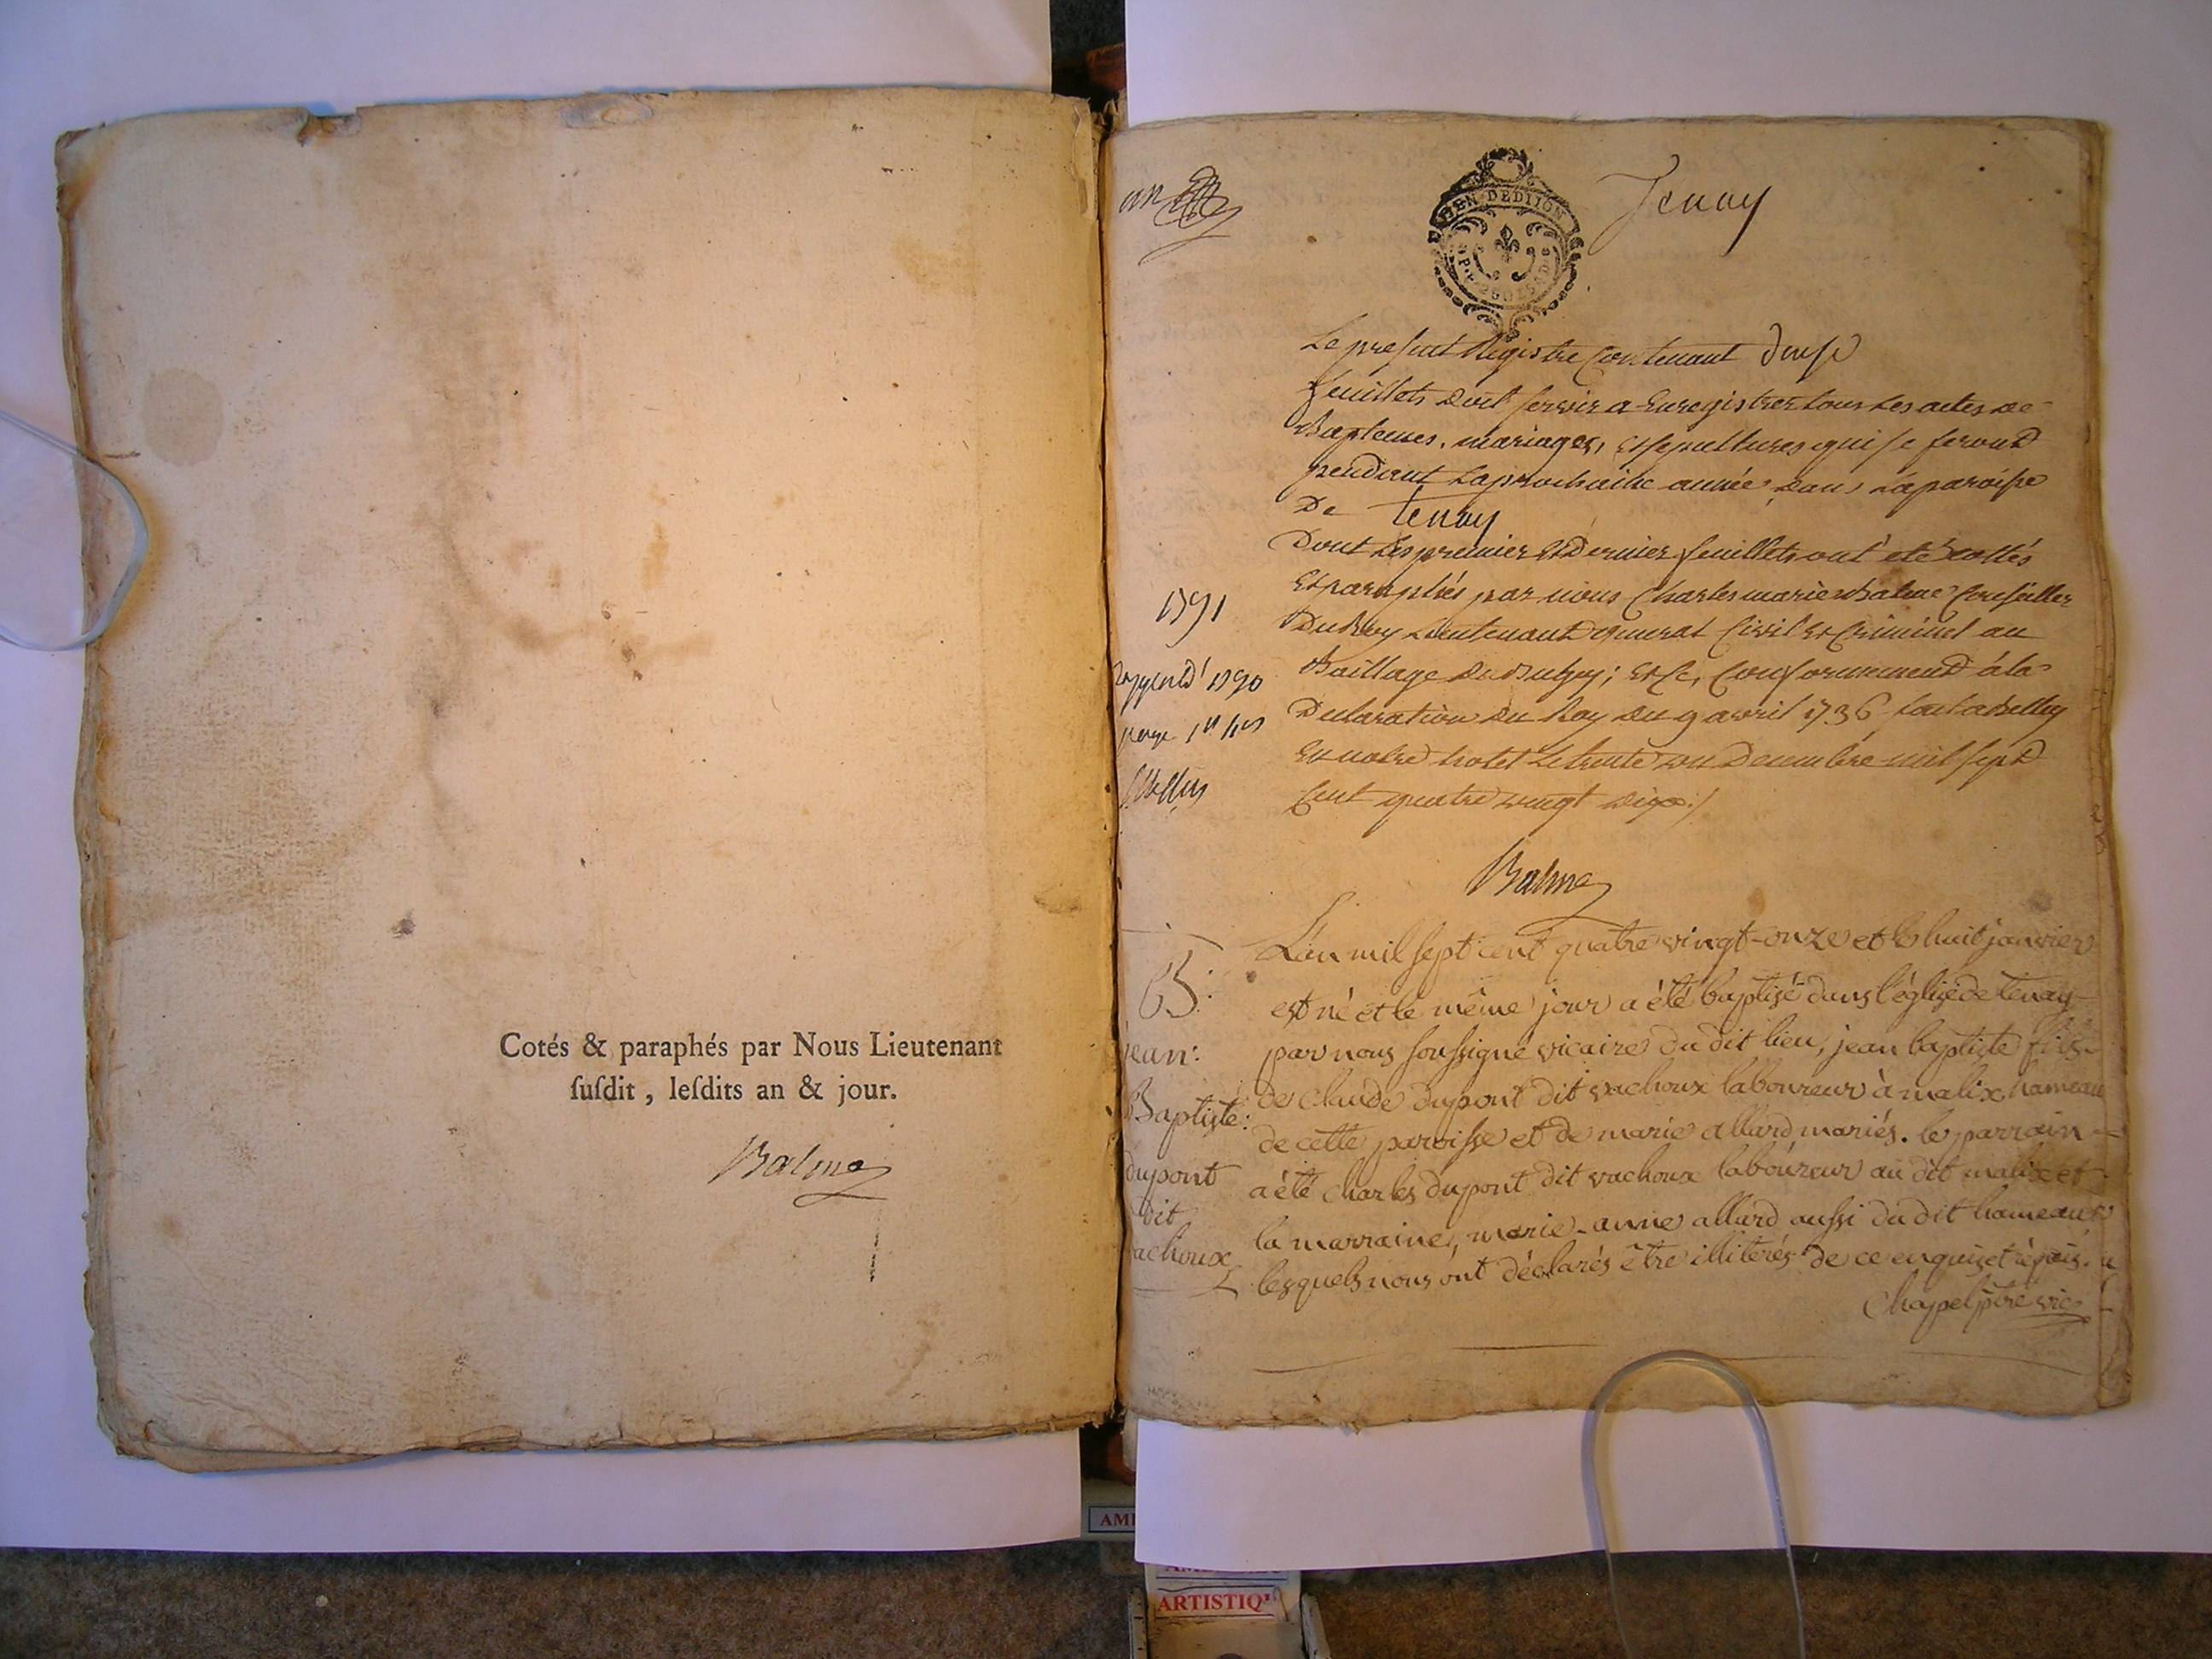 Cotés & paraphés par Nous Lieutenant
ſuſdit, leſdits an & jour.
Balme
un
GEN. DE DIJON
Tenay
Le present Registre Contenant douse
feuillets doit servir a Enregistrer tous Les actes de
Baptemes, mariages, et sepultures qui se feront
pendant La prochaine année dans La paroisse
De Tenay
Dont Les premier Et Dernier feuillets ont eté cottés
Et paraphés par nous Charles marie Balme Conseiller
Du Roy Lieutenant general Civil Et Criminel au
Bailliage Du Bugey; Et Ce, Conformement à la
Declaration du Roy du 9 avril 1736 fait a Belley
En notre hotel Le trente un Decembre mil sept
Cent quatre vingt dix :/
1791
1790
Balme
L'an mil sept cent quatre vingt-onze et le huit janvier
est né et le même jour a été baptisé dans l'église de tenay
par nous soussigné vicaire du dit lieu, jean baptiste fils
de claude dupont dit vachoux laboureur à malix hameau
de cette paroisse et de marie allard mariés. le parrain
a été charles dupont dit vachoux laboureur au dit malix et
la marraine, marie-anne allard aussi du dit hameau
lesquels nous ont déclarés être illiterés de ce enquis et réquis.
Chapel ptre vic
B:
jean:
Baptiste:
dupont
dit
achoux
AMI
ARTISTIQ